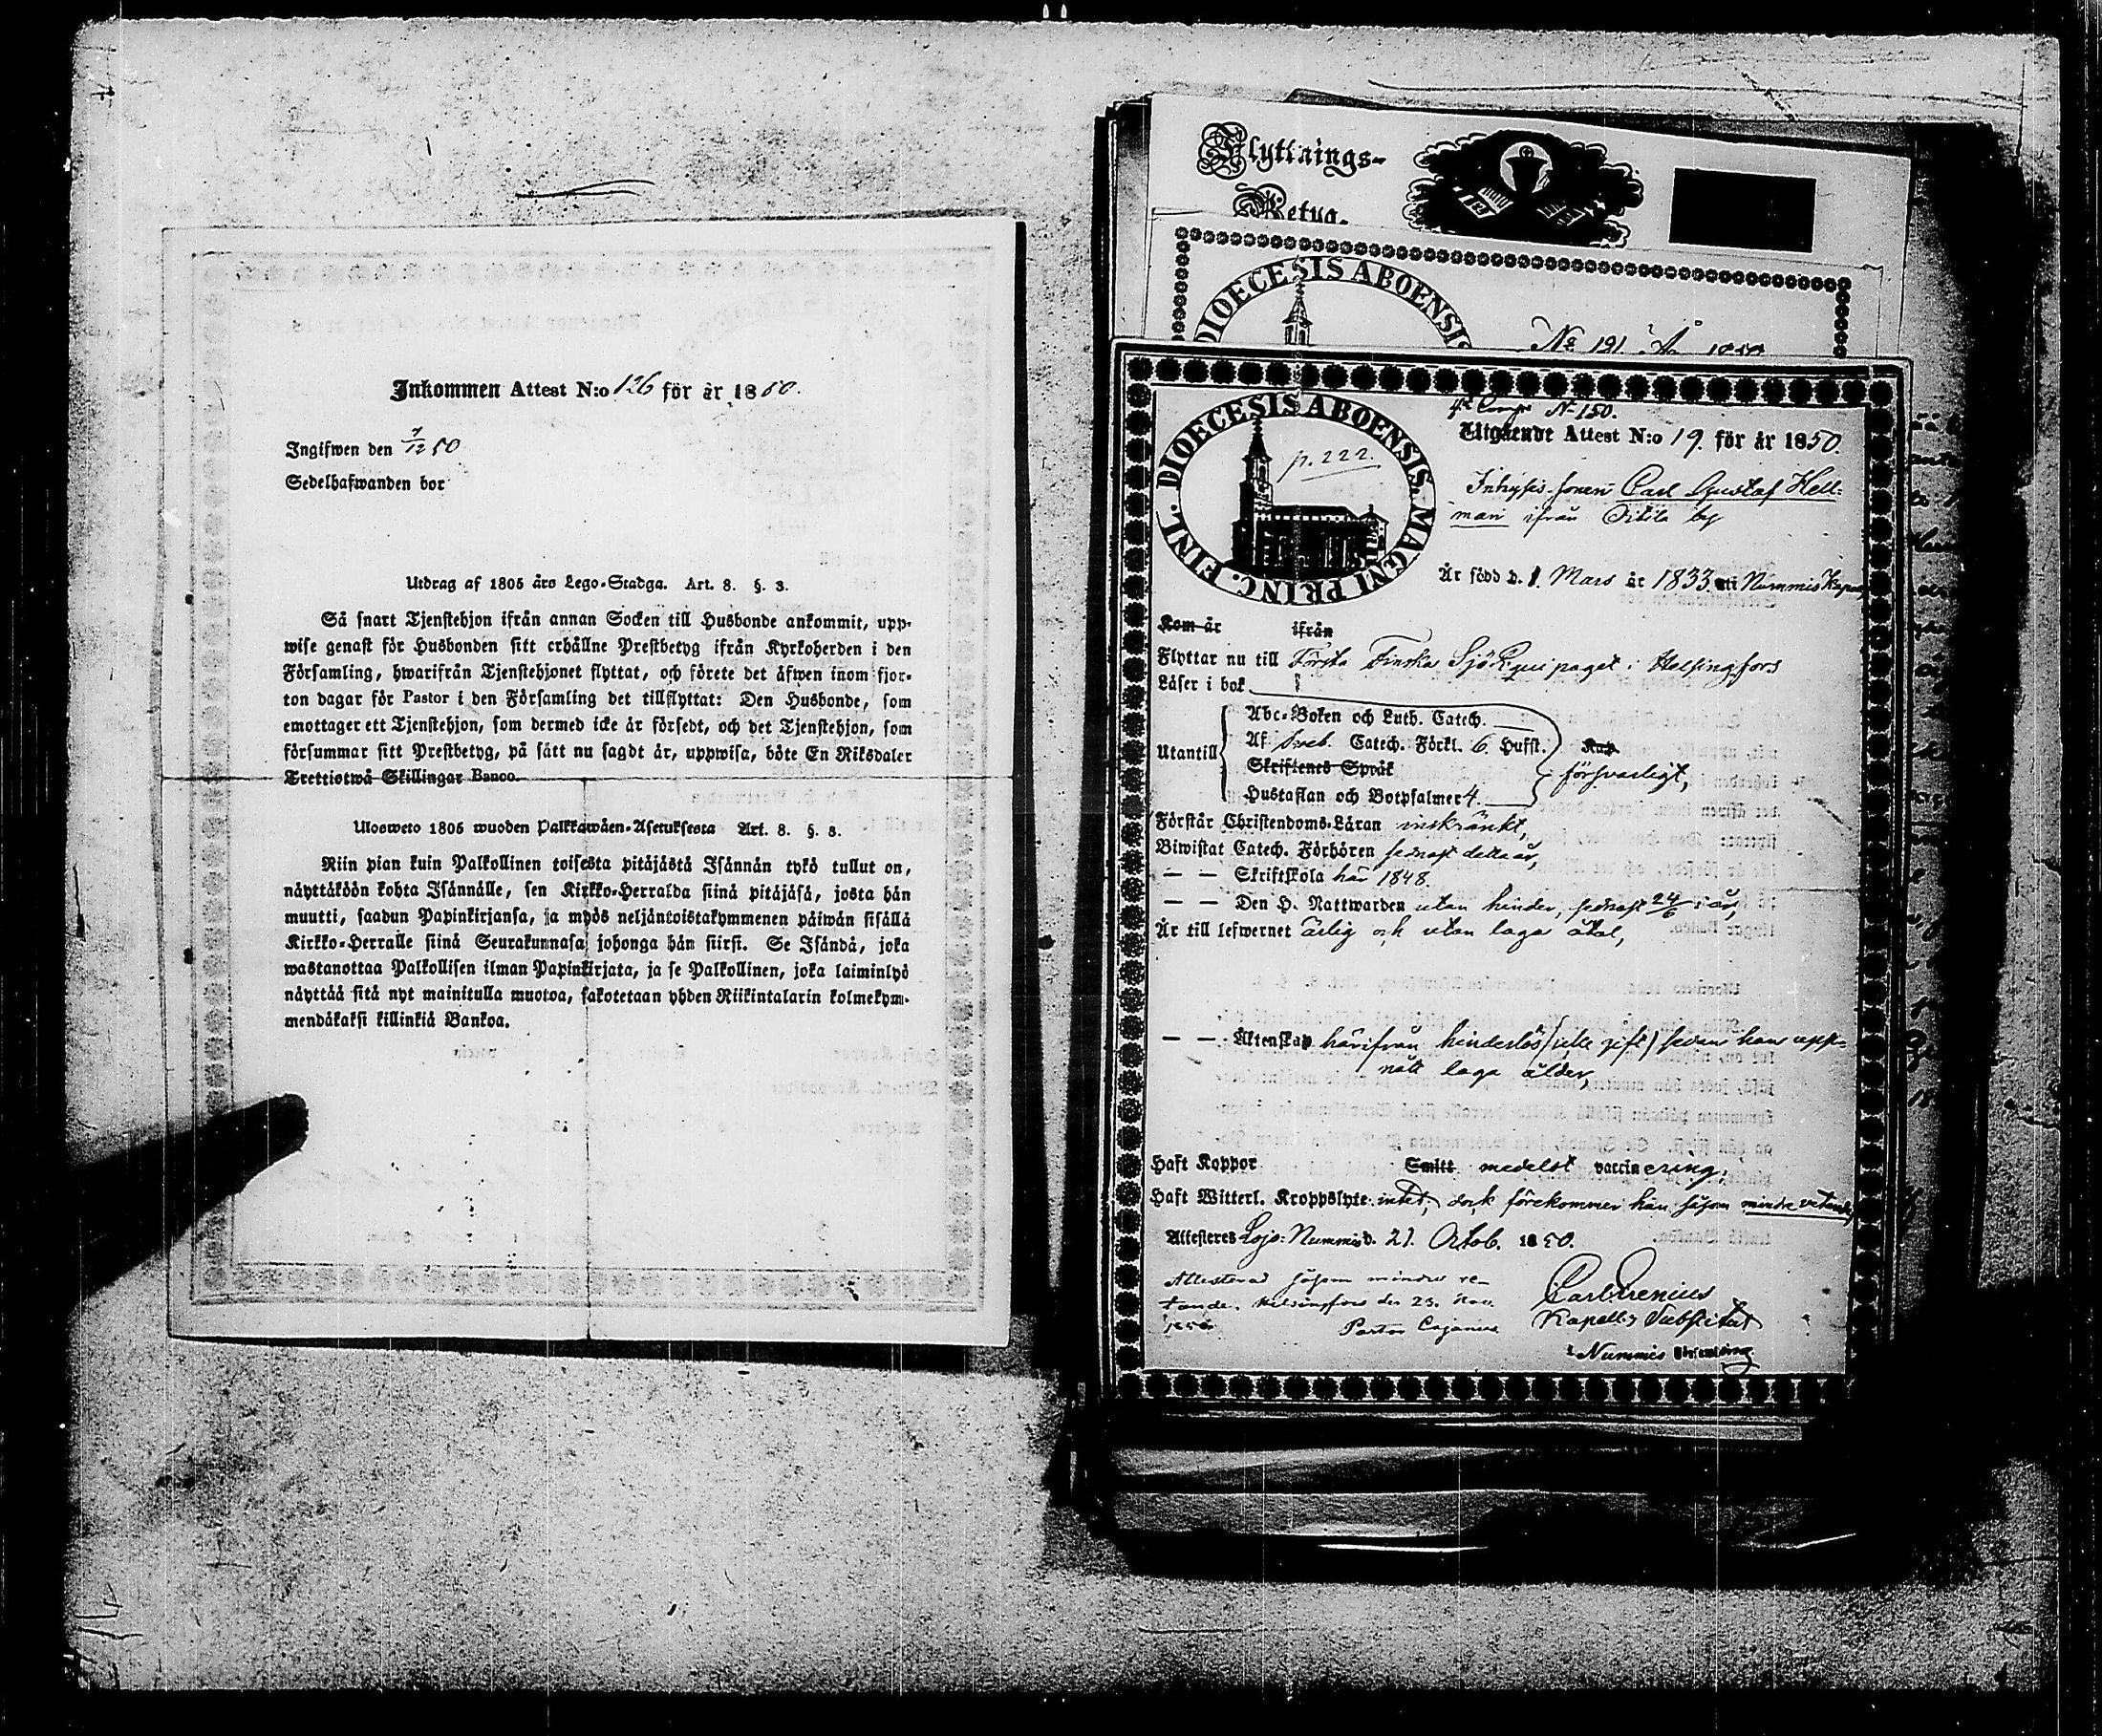 Inkommen Attest N:o 126 för år 1850.
Ingifwen den 7/12 50
Sedelhafwanden bor
Utdrag af 1805 års Lego-Stadga. Art. 8. §. 3.
Så snart Tjenstehjon ifrån annan Socken till Husbonde ankommit, upp-
wise genast för Husbonden sitt erhållne Prestbetyg ifrån Kyrkoherden i den
Församling, hwarifrån Tjenstehjonet flyttat, och förete det äfwen inom fjor-
ton dagar för Pastor i den Församling det tillflyttat: Den Husbonde, som
emottager ett Tjenstehjon, som dermed icke är försedt, och det Tjenstehjon, som
försummar sitt Prestbetyg, på sätt nu sagdt är, uppwisa, böte En Riksdaler
Trettiotwå Skillingar Banco.
Ulosweto 1805 wuoden Palkkawäen-Asetuksesta Art. 8. §. 3.
Niin pian kuin Palkollinen toisesta pitäjästä Isännän tykö tullut on,
näyttäköön kohta Isännälle, sen Kirkko-Herralda siinä pitäjäsä, josta hän
muutti, saadun Papinkirjansa, ja myös neljäntoistakymmenen päiwän sisällä
Kirkko-Herralle siinä Seurakunnasa johonga hän siirsi. Se Isändä, joka
wastanottaa Palkollisen ilman Papinkirjata, ja se Palkollinen, joka laiminlyö
näyttää sitä nyt mainitulla muotoa, sakotetaan yhden Riikintalarin kolmekym-
mendäkaksi killinkiä Bankoa.
Flyttnings-
Betyg.
DIOECESIS ABOENSIS
No 191 År 1850
DIOECESIS ABOENSIS. MAGNI PRINC. FINL.
p. 222.
4de Comp. No 150.
Utgående Attest N:o 19. för år 1850.
Inhyses-sonen Carl Gustaf Hell-
man ifrån by
Är född d. 1. Mars år 1833 uti Nummis Kapell
Kom år ifrån
Flyttar nu till Första Finska Sjö Equipaget i Helsingfors
Läser i bok
Abc-Boken och Luth. Catech.
Utantill Af Sveb. Catech. Förkl. 6 Hufst.
Skriftenes Språk försvarligt,
Hustaflan och Botpsalmer 4.
Förstår Christendoms-Läran inskränkt,
Biwistat Catech. Förhören sednast detta år,
— — Skriftskola här 1848.
— — Den H. Nattwarden utan hinder, sednast 24/6 i år,
Är till lefwernet ärlig och utan laga åtal,
— — Äktenskap härifrån hinderlös (icke gift) sedan han upp-
nått laga ålder,
Haft Koppor Smitt medelst vaccinering,
Haft Witterl. Kroppslyte intet, dock förekommer han såsom mindre vetande,
Attesteres Lojo-Nummis d. 21. Octob. 1850.
Attesterad såsom mindre ve-
tande. Helsingfors den 23. Nov.
1850 Pastor Cajanus
Carl Brenius
Kapell:s Substitut
i Nummis församling